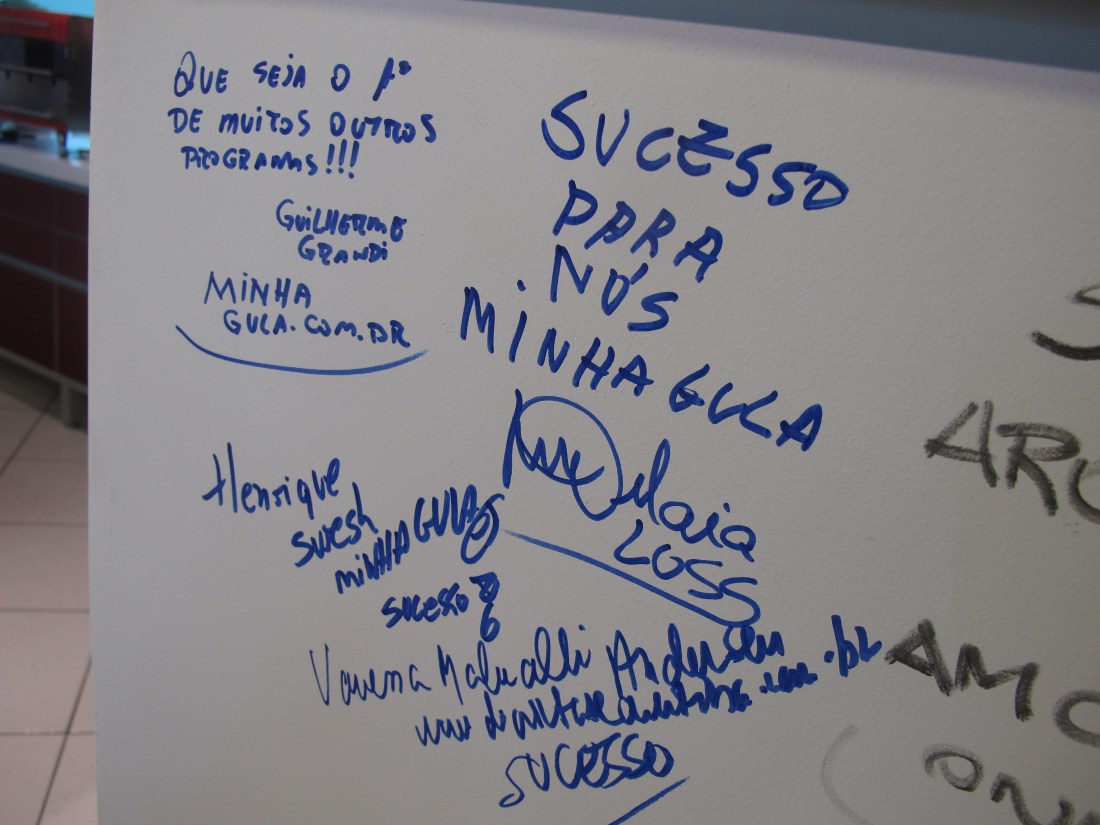 QUE SEJA O 1º
DE MUITOS OUTROS
PROGRAMAS!!!
GUILHERME
GRANDI
MINHA
GULA.COM.BR
SUCESSO
PARA
NÓS
MINHA GULA
Maia
LOSS
Henrique
MINHA GULA
SUCESSO
Vanessa Malucelli Andersen
.com.br
SUCESSO
S
ARO
AMO